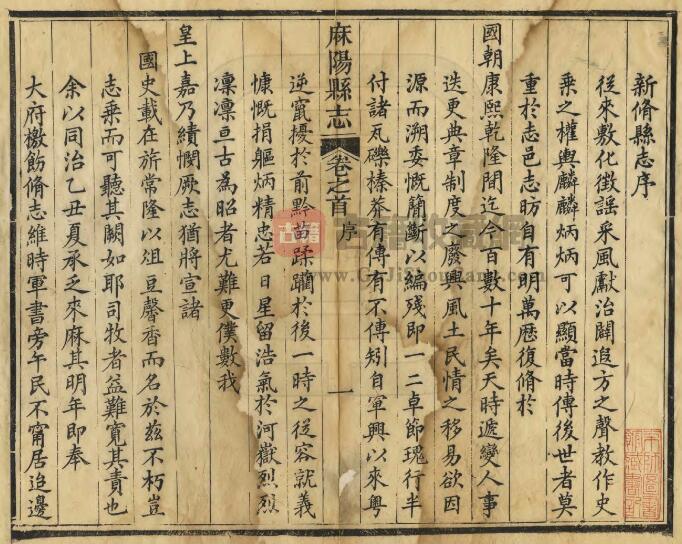 新脩縣志序
從來敷化徵謡采風獻治闢遐方之聲教作史
乘之權輿麟麟炳炳可以顯當時傳後世者莫
重於志邑志昉自有明萬歷復脩於
國朝康熙乾隆閒迄今百數十年矣天時遞變人事
迭更典章制度之廢興風土民情之移易欲因
源而溯委慨簡斷以編殘即一二卓節瑰行半
付諸瓦礫榛莽有傳有不傳矧自軍興以來粤
麻陽縣志
卷之首
序
一
逆竄擾於前黔苗蹂躪於後一時之從容就義
慷慨捐軀炳精忠若日星留浩氣於河嶽烈烈
凜凜亘古為昭者尤難更僕數我
皇上嘉乃績憫厥志猶將宣諸
國史載在旂常隆以俎豆馨香而名於兹不朽豈
志乘而可聽其闕如耶司牧者益難寬其責也
余以同治乙丑夏承乏來麻其明年即奉
大府檄飭脩志維時軍書旁午民不甯居迨邊
古籍